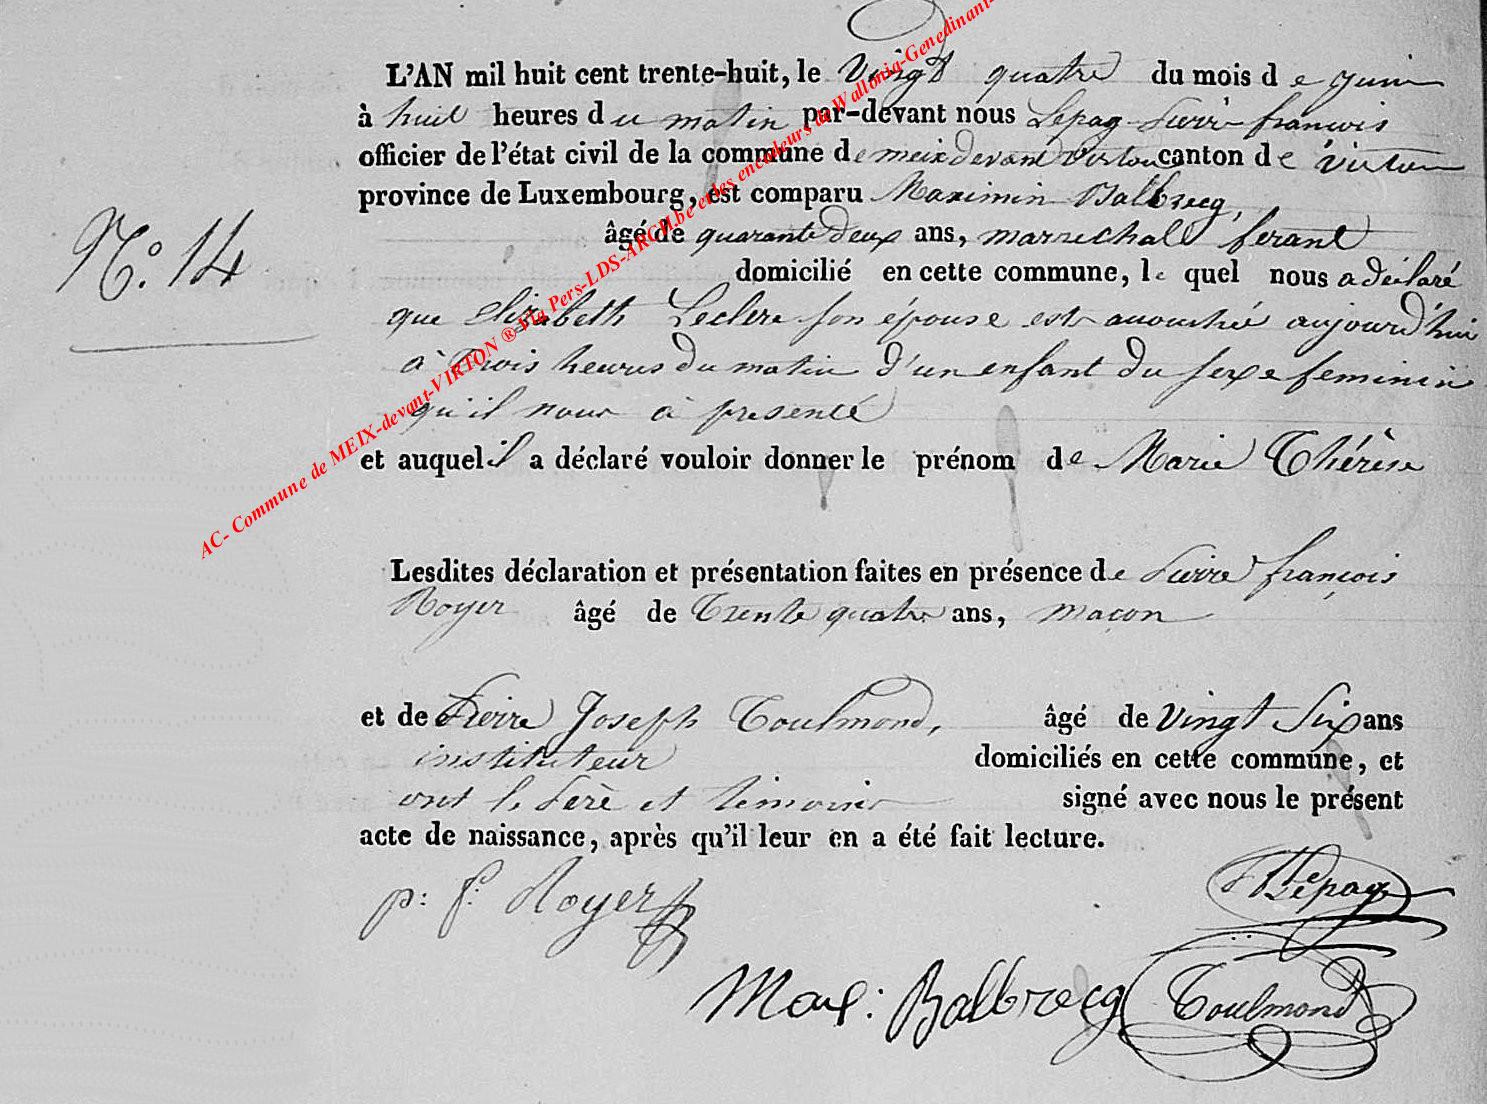 L'AN mil huit cent trente-huit, le Vingt quatre du mois de juin
à huit heures du matin par-devant nous Lepag Pierre françois
officier de l'état civil de la commune de meix devant Virton canton de Virton
province de Luxembourg, est comparu Maximin Balbrecq,
âgé de quarante deux ans, marrechall ferant
N.º 14
domicilié en cette commune, le quel nous a déclaré
que Elizabeth Leclere son épouse est accouchée aujourd'hui
à Trois heures du matin d'un enfant du sexe feminin
qu'il nous à presenté
et auquel il a déclaré vouloir donner le prénom de Marie Thérèse
Lesdites déclaration et présentation faites en présence de Pierre françois
Royer âgé de Trente quatre ans, maçon
et de Pierre Joseph Toulmond, âgé de Vingt Six ans
instituteur domiciliés en cette commune, et
ont le Père et temoins signé avec nous le présent
acte de naissance, après qu'il leur en a été fait lecture.
p: f: Royer
Lepag
Max: Balbrecq Toulmond
AC- Commune de MEIX-devant-VIRTON ® Via Pers-LDS-ARCH.be et les encodeurs de Wallonia-Genedinant-